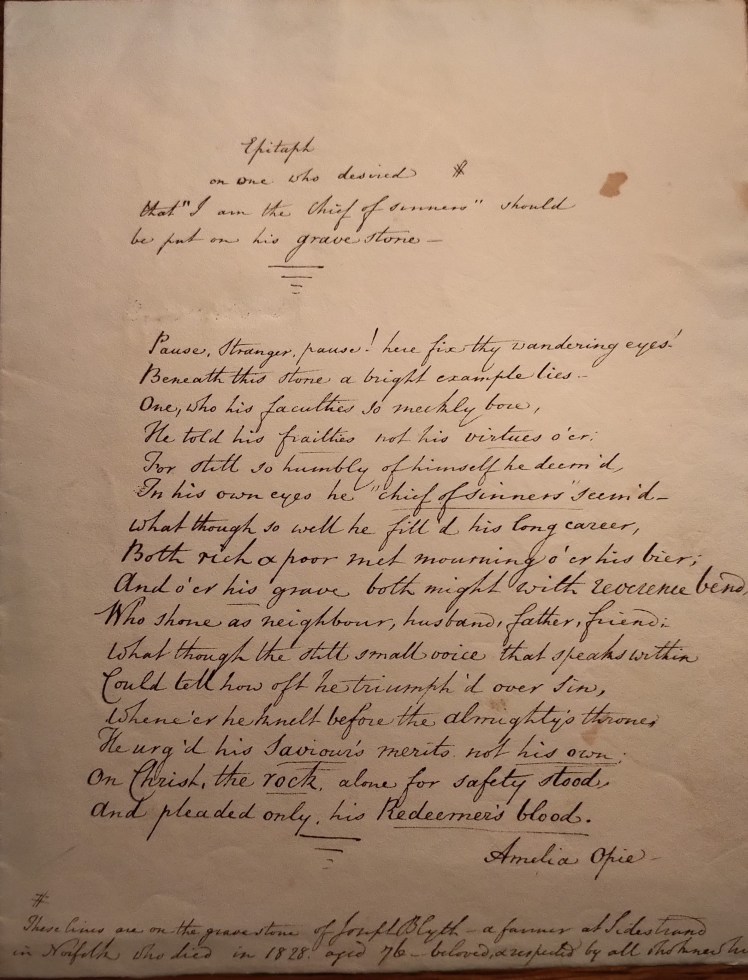 Epitaph
on one who desired #
that "I am the chief of sinners" should
be put on his grave stone –
Pause, Stranger, pause! here fix thy wandering eyes!
Beneath this stone a bright example lies –
One, who his faculties so meekly bore,
He told his frailties not his virtues o'er:
For still so humbly of himself he deem'd,
In his own eyes he "chief of sinners" seem'd –
What though so well he fill'd his long career,
Both rich & poor met mourning o'er his bier;
And o'er his grave both might with reverence bend,
Who shone as neighbour, husband, father, friend;
What though the still small voice that speaks within
Could tell how oft he triumph'd over Sin,
Whene'er he knelt before the almighty's throne,
He urg'd his Saviour's merits not his own;
On Christ, the rock, alone for safety stood,
And pleaded only, his Redeemer's blood.
Amelia Opie –
#
These lines are on the grave stone of Joseph Blyth – a farmer at Sidestrand
in Norfolk who died in 1828 aged 76 – beloved, & respected by all who knew